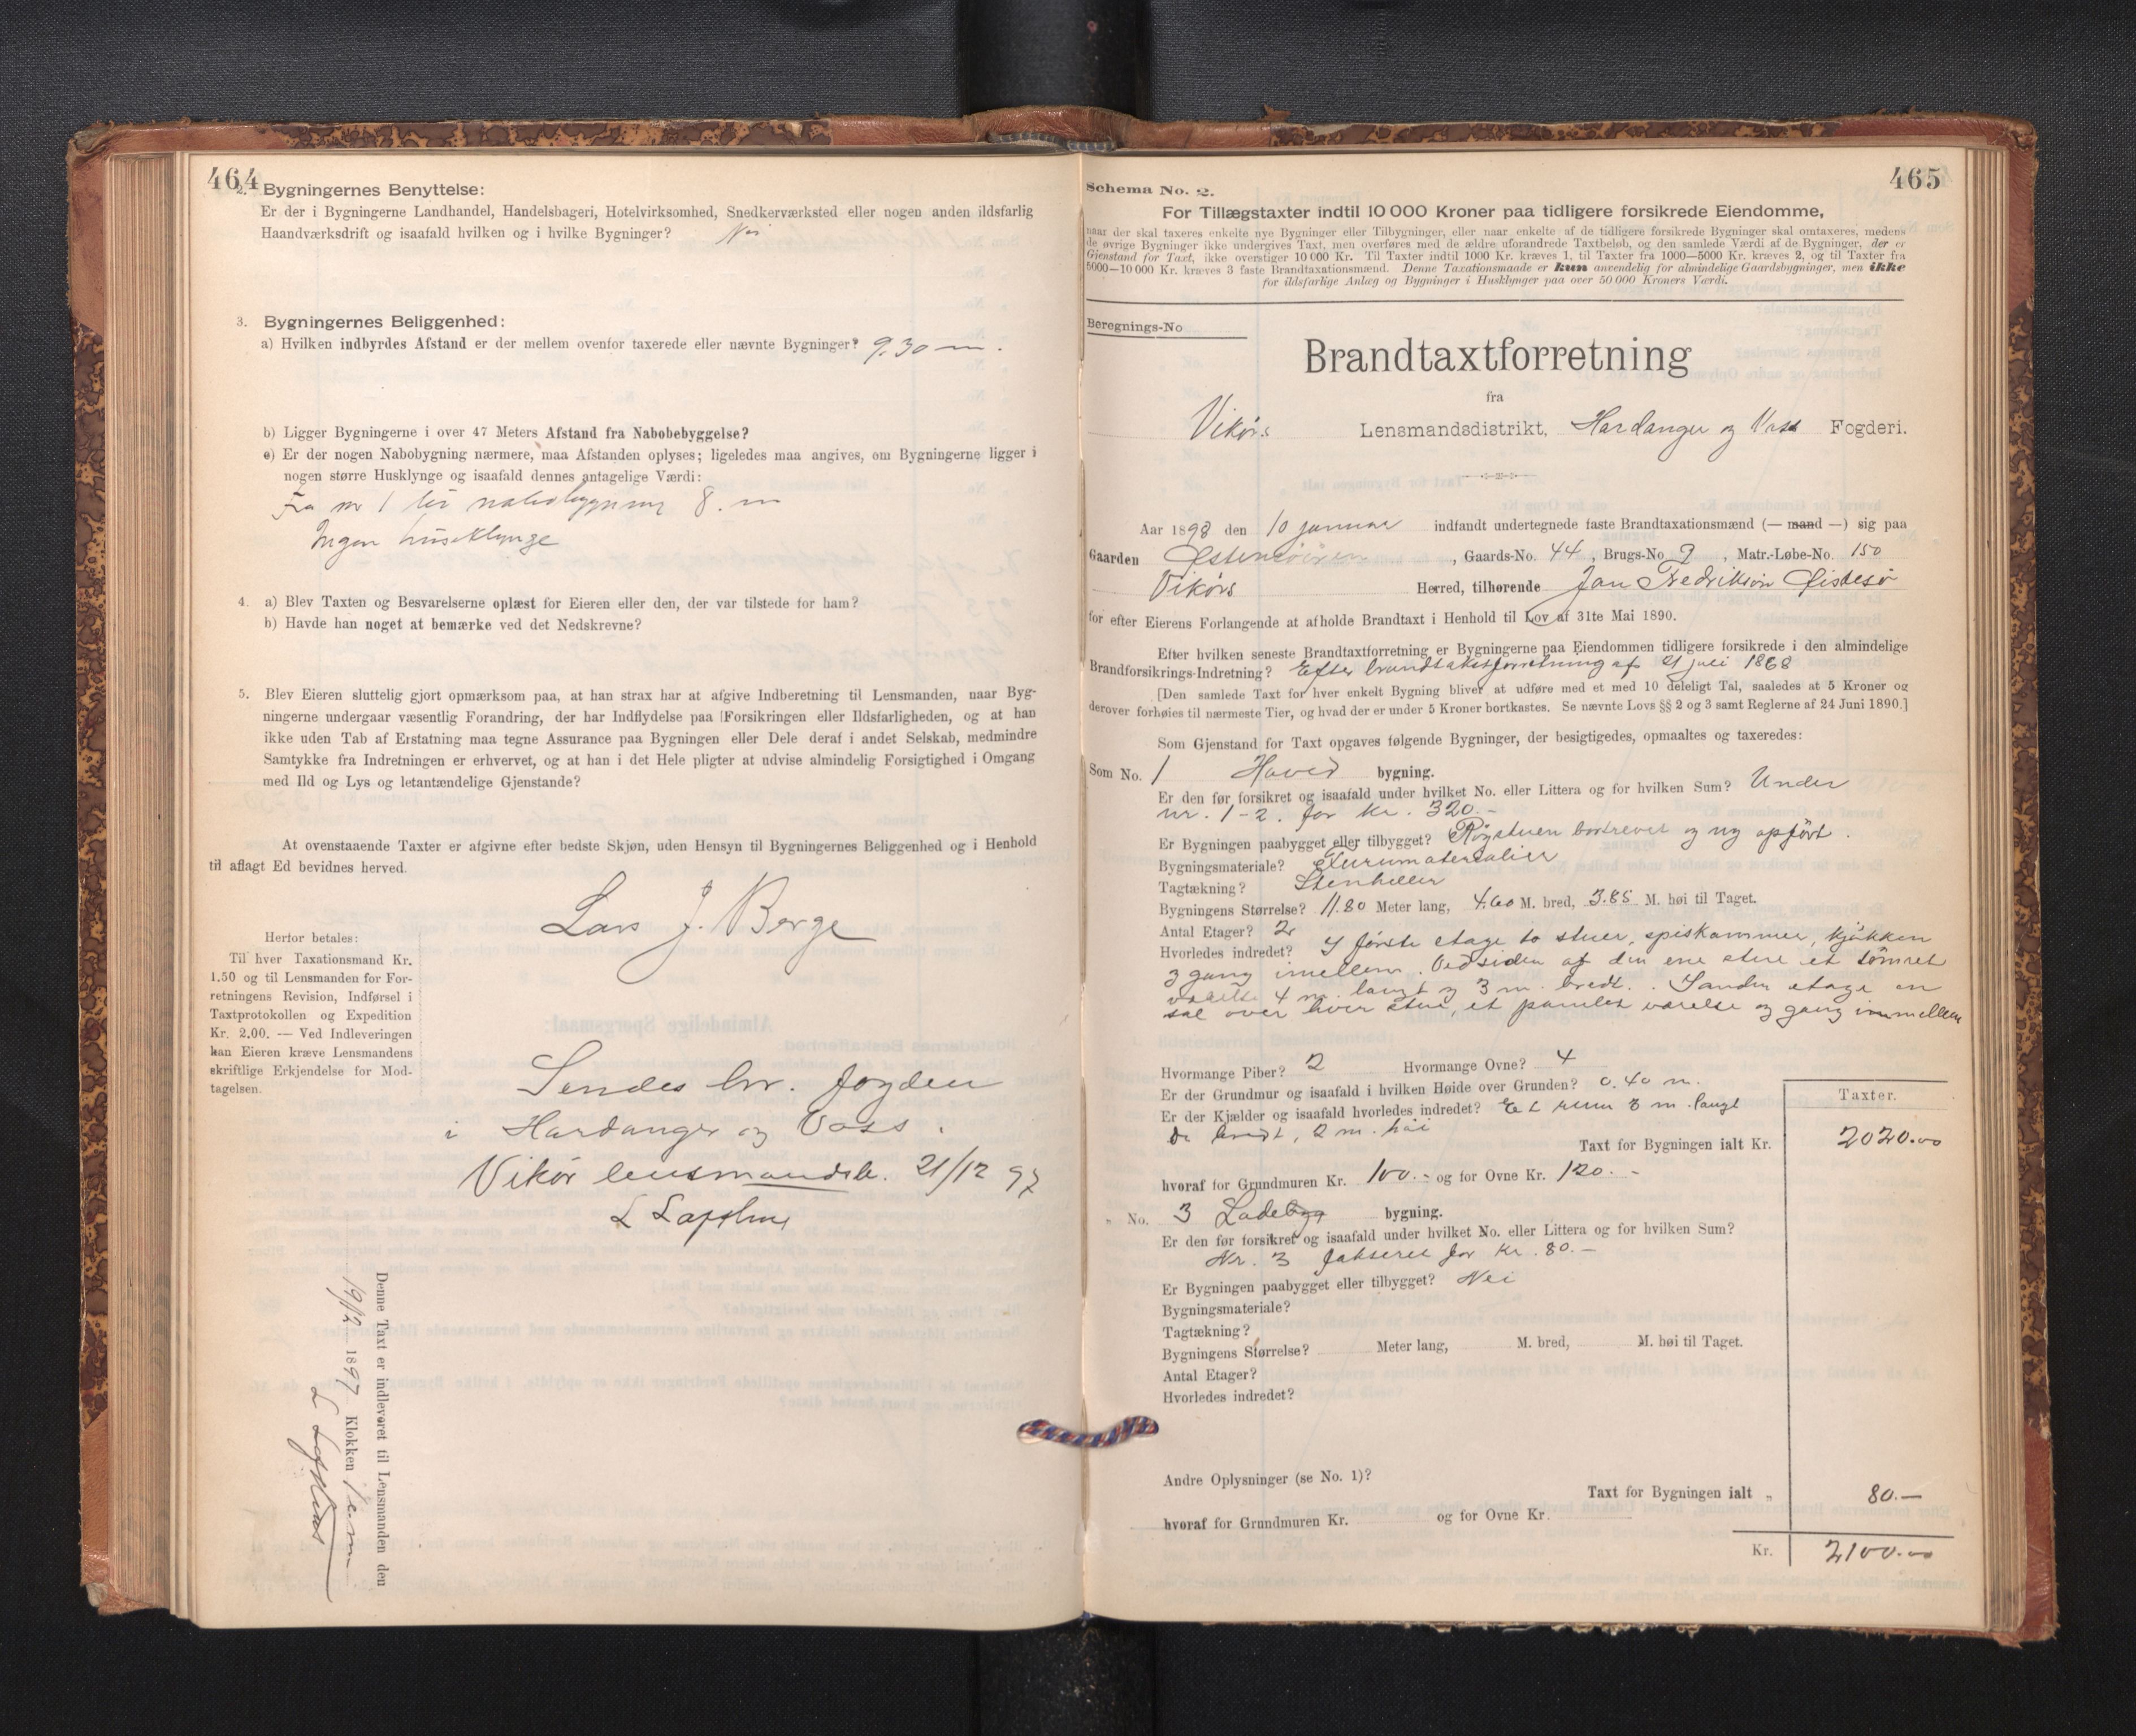 464
2. Bygningernes Benyttelse:
Er der i Bygningerne Landhandel, Handelsbageri, Hotelvirksomhed, Snedkerværksted eller nogen anden ildsfarlig
Haandværksdrift og isaafald hvilken og i hvilke Bygninger? Nei
3. Bygningernes Beliggenhed:
a) Hvilken indbyrdes Afstand er der mellem ovenfor taxerede eller nævnte Bygninger? 9.30 m.
b) Ligger Bygningerne i over 47 Meters Afstand fra Nabobebyggelse?
c) Er der nogen Nabobygning nærmere, maa Afstanden oplyses; ligeledes maa angives, om Bygningerne ligger i
nogen større Husklynge og isaafald dennes antagelige Værdi:
Fra nr 1 til nabobygning 8. m
Ingen husklynge
4. a) Blev Taxten og Besvarelserne oplæst for Eieren eller den, der var tilstede for ham?
b) Havde han noget at bemærke ved det Nedskrevne?
5. Blev Eieren sluttelig gjort opmærksom paa, at han strax har at afgive Indberetning til Lensmanden, naar Byg-
ningerne undergaar væsentlig Forandring, der har Indflydelse paa Forsikringen eller Ildsfarligheden, og at han
ikke uden Tab af Erstatning maa tegne Assurance paa Bygningen eller Dele deraf i andet Selskab, medmindre
Samtykke fra Indretningen er erhvervet, og at han i det Hele pligter at udvise almindelig Forsigtighed i Omgang
med Ild og Lys og letantændelige Gjenstande?
At ovenstaaende Taxter er afgivne efter bedste Skjøn, uden Hensyn til Bygningernes Beliggenhed og i Henhold
til aflagt Ed bevidnes herved.
Lars J. Berge
Herfor betales:
Til hver Taxationsmand Kr.
1.50 og til Lensmanden for For-
retningens Revision, Indførsel i
Taxtprotokollen og Expedition
Kr. 2.00. — Ved Indleveringen
kan Eieren kræve Lensmandens
skriftlige Erkjendelse for Mod-
tagelsen.
Sendes hr. fogden
i Hardanger og Voss.
Vikør lensmandsb. 21/12 97
Denne Taxt er indleveret til Lensmanden den
19/12 1897 Klokken 1 em
465
Schema No. 2.
For Tillægstaxter indtil 10 000 Kroner paa tidligere forsikrede Eiendomme,
naar der skal taxeres enkelte nye Bygninger eller Tilbygninger, eller naar enkelte af de tidligere forsikrede Bygninger skal omtaxeres, medens
de øvrige Bygninger ikke undergives Taxt, men overføres med de ældre uforandrede Taxtbeløb, og den samlede Værdi af de Bygninger, der er
Gjenstand for Taxt, ikke overstiger 10 000 Kr. Til Taxter indtil 1000 Kr. kræves 1, til Taxter fra 1000—5000 Kr. kræves 2, og til Taxter fra
5000—10 000 Kr. kræves 3 faste Brandtaxationsmænd. Denne Taxationsmaade er kun anvendelig for almindelige Gaardsbygninger, men ikke
for ildsfarlige Anlæg og Bygninger i Husklynger paa over 50 000 Kroners Værdi.
Beregnings-No
Brandtaxtforretning
fra
Vikørs Lensmandsdistrikt, Hardanger og Voss Fogderi.
Aar 1898 den 10 januar indfandt undertegnede faste Brandtaxationsmænd (— mand —) sig paa
Gaarden , Gaards-No. 44, Brugs-No 9, Matr.-Løbe-No. 150
Vikørs Herred, tilhørende Jan Fredriksøn Øistesø
for efter Eierens Forlangende at afholde Brandtaxt i Henhold til Lov af 31te Mai 1890.
Efter hvilken seneste Brandtaxtforretning er Bygningerne paa Eiendommen tidligere forsikrede i den almindelige
Brandforsikrings-Indretning? Efter brandtakstforretning af 21 juli 1868
[Den samlede Taxt for hver enkelt Bygning bliver at udføre med et med 10 deleligt Tal, saaledes at 5 Kroner og
derover forhøies til nærmeste Tier, og hvad der er under 5 Kroner bortkastes. Se nævnte Lovs §§ 2 og 3 samt Reglerne af 24 Juni 1890.]
Som Gjenstand for Taxt opgaves følgende Bygninger, der besigtigedes, opmaaltes og taxeredes:
Som No. 1 Hoved bygning.
Er den før forsikret og isaafald under hvilket No. eller Littera og for hvilken Sum? Under
nr. 1-2. for kr. 320.-
Er Bygningen paabygget eller tilbygget? Røgstuen bortrevet og ny opført.
Bygningsmateriale? Furumaterialier
Tagtækning? Stenheller
Bygningens Størrelse? 11.80 Meter lang, 4.60 M. bred, 3.85 M. høi til Taget.
Antal Etager? 2
Hvorledes indredet? I første etage to stuer, spiskammer, kjøkken
og gang imellem. Ved siden af den ene stue et tømret
værelse 4 m. langt og 3 m. bredt. I anden etage en
sal over hver stue, et panelet værelse og gang immellem
Hvormange Piber? 2 Hvormange Ovne? 4
Er der Grundmur og isaafald i hvilken Høide over Grunden? 0.40 m.
Er der Kjælder og isaafald hvorledes indredet? Et rum 3 m. langt
do bredt, 2 m. høi
Taxter.
Taxt for Bygningen ialt Kr. 2020.00
hvoraf for Grundmuren Kr. 100.- og for Ovne Kr. 120.-
„ No. 3 Ladebyg bygning.
Er den før forsikret og isaafald under hvilket No. eller Littera og for hvilken Sum?
Nr. 3 takseret for kr. 80.-
Er Bygningen paabygget eller tilbygget? Nei
Bygningsmateriale?
Tagtækning?
Bygningens Størrelse? Meter lang, M. bred, M. høi til Taget.
Antal Etager?
Hvorledes indredet?
Andre Oplysninger (se No. 1)?
Taxt for Bygningen ialt „ 80.-
hvoraf for Grundmuren Kr. og for Ovne Kr.
Kr. 2100.00